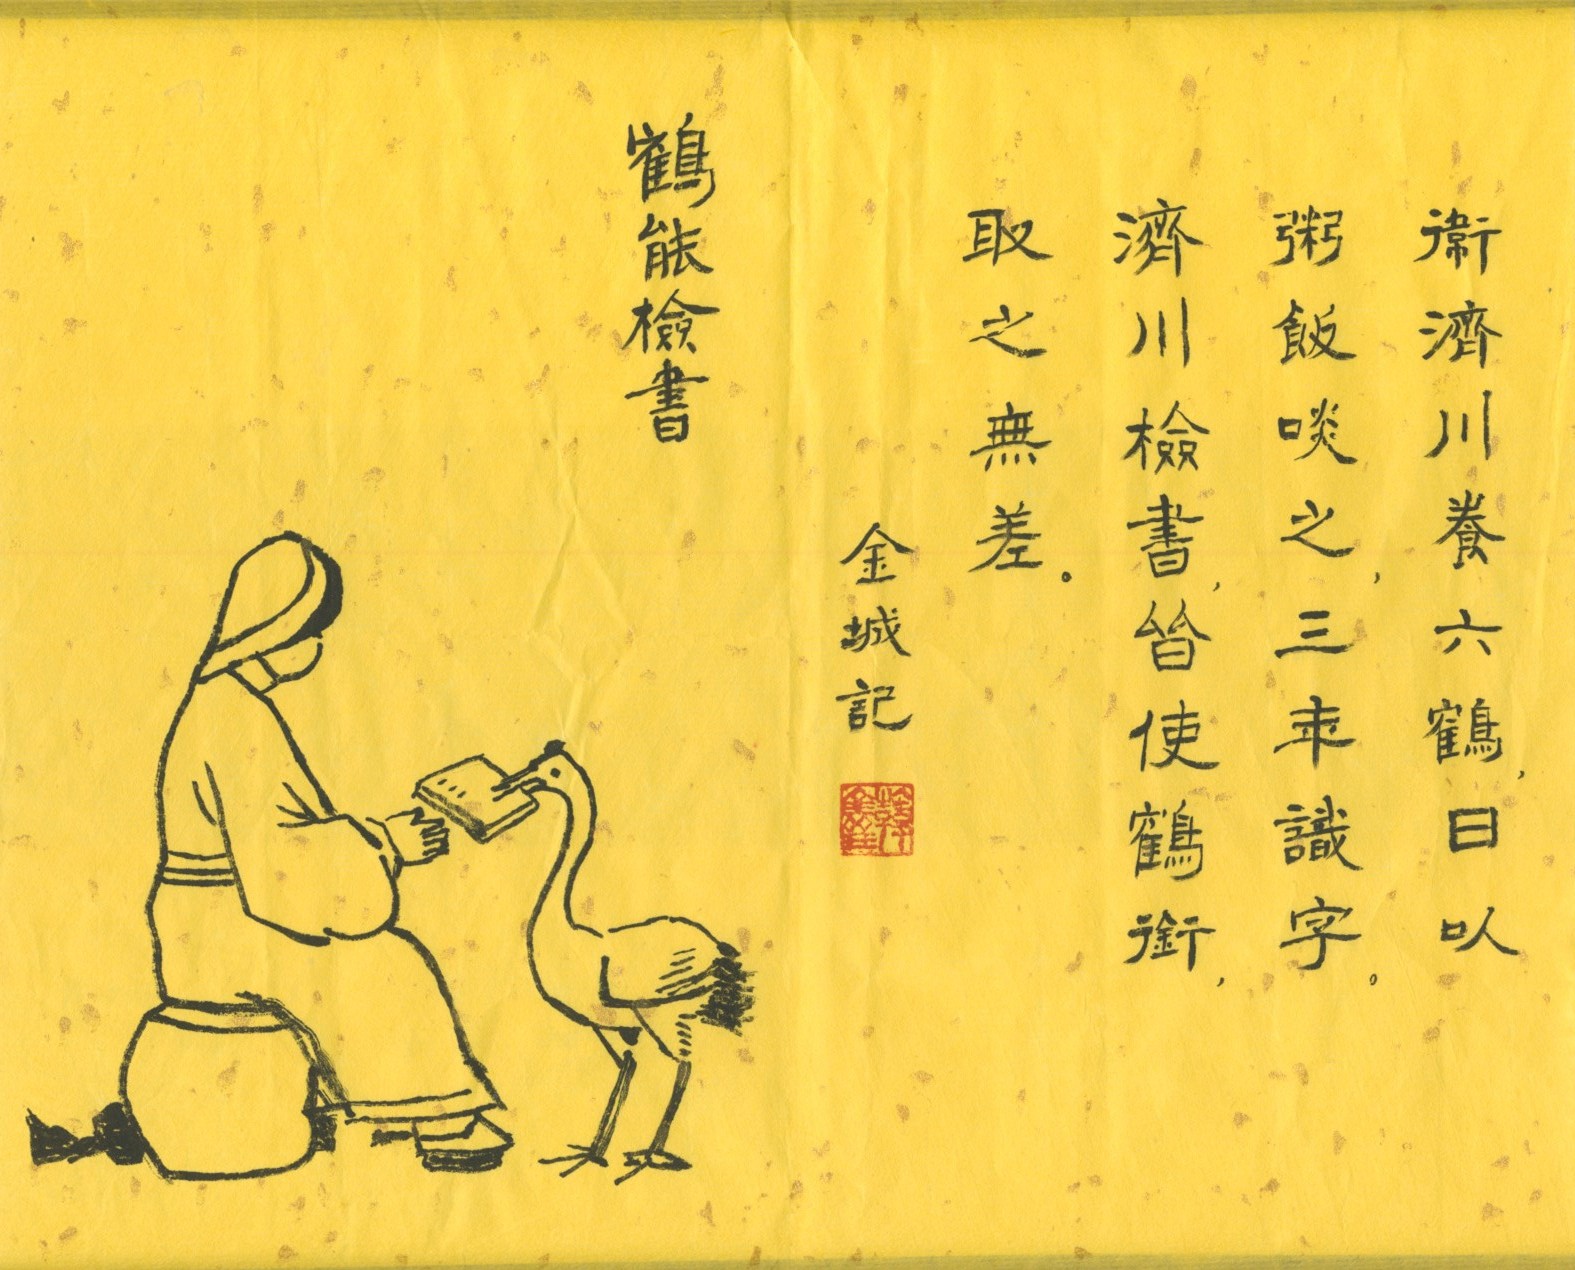 衛濟川養六鶴，日以
粥飯啖之，三年識字。
濟川檢書，皆使鶴銜，
取之無差。
金城記
鶴能檢書